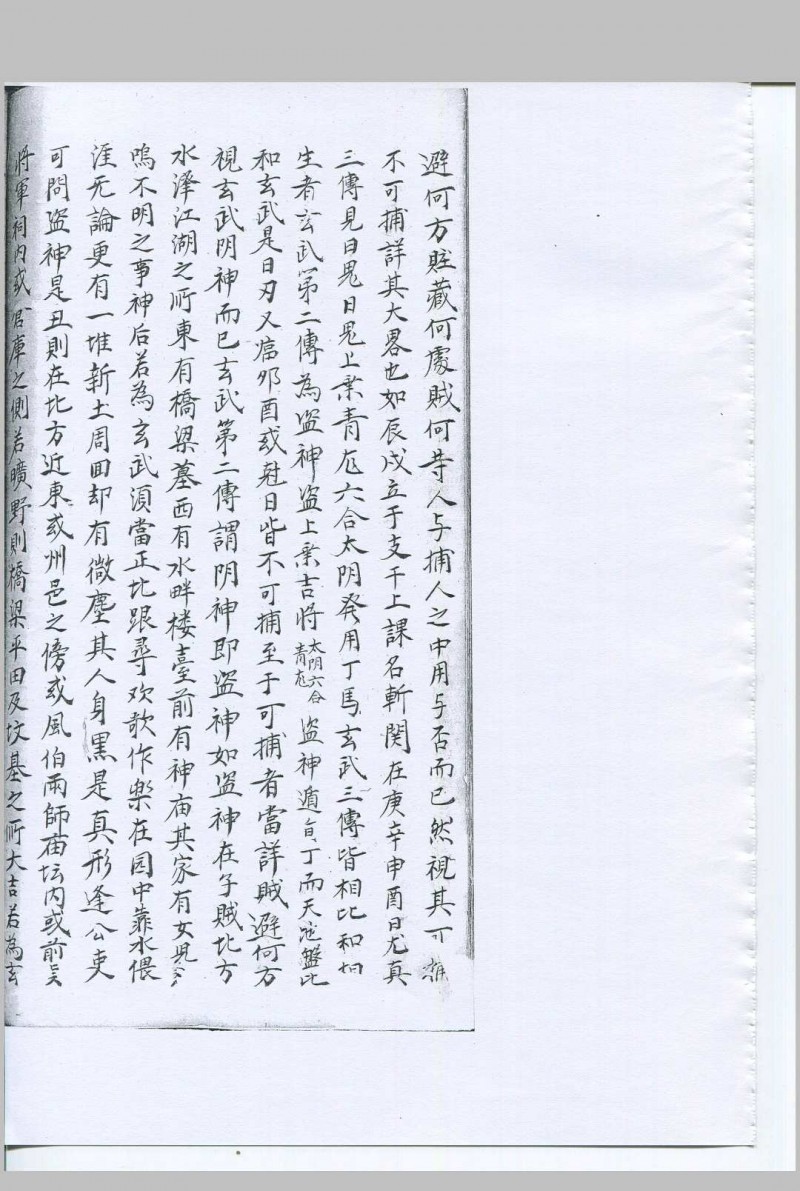 避何方貯藏何處賊何等人与捕人之中用与否而已然視其可
不可捕詳其大畧也如辰戌立于支干上課名斬関在庚辛申酉日尤真
三傳見日鬼日鬼上乗青龙六合太阴発用丁馬玄武三傳皆相比和相
生者玄武第二傳為盗神盗上乗吉將太阴六合青龙盗神遁旬丁而天地盤比
和玄武是日刃又临夘酉或尅日皆不可捕至于可捕者當詳賊避何方
視玄武阴神而已玄武第二傳謂阴神即盗神如盗神在子賊北方
水澤江湖之所東有橋梁墓西有水畔楼臺前有神庙其家有女児
鸣不明之事神后若為玄武須當正北跟尋欢歌作樂在园中靠水偎
涯无論更有一堆新土周回却有微塵其人身黒是真形逢公吏
可問盗神是丑則在北方近東或州邑之傍或風伯雨師庙坛内或前
將軍祠内或倉庫之側若曠野則橋梁平田及坟墓之所大吉若為玄